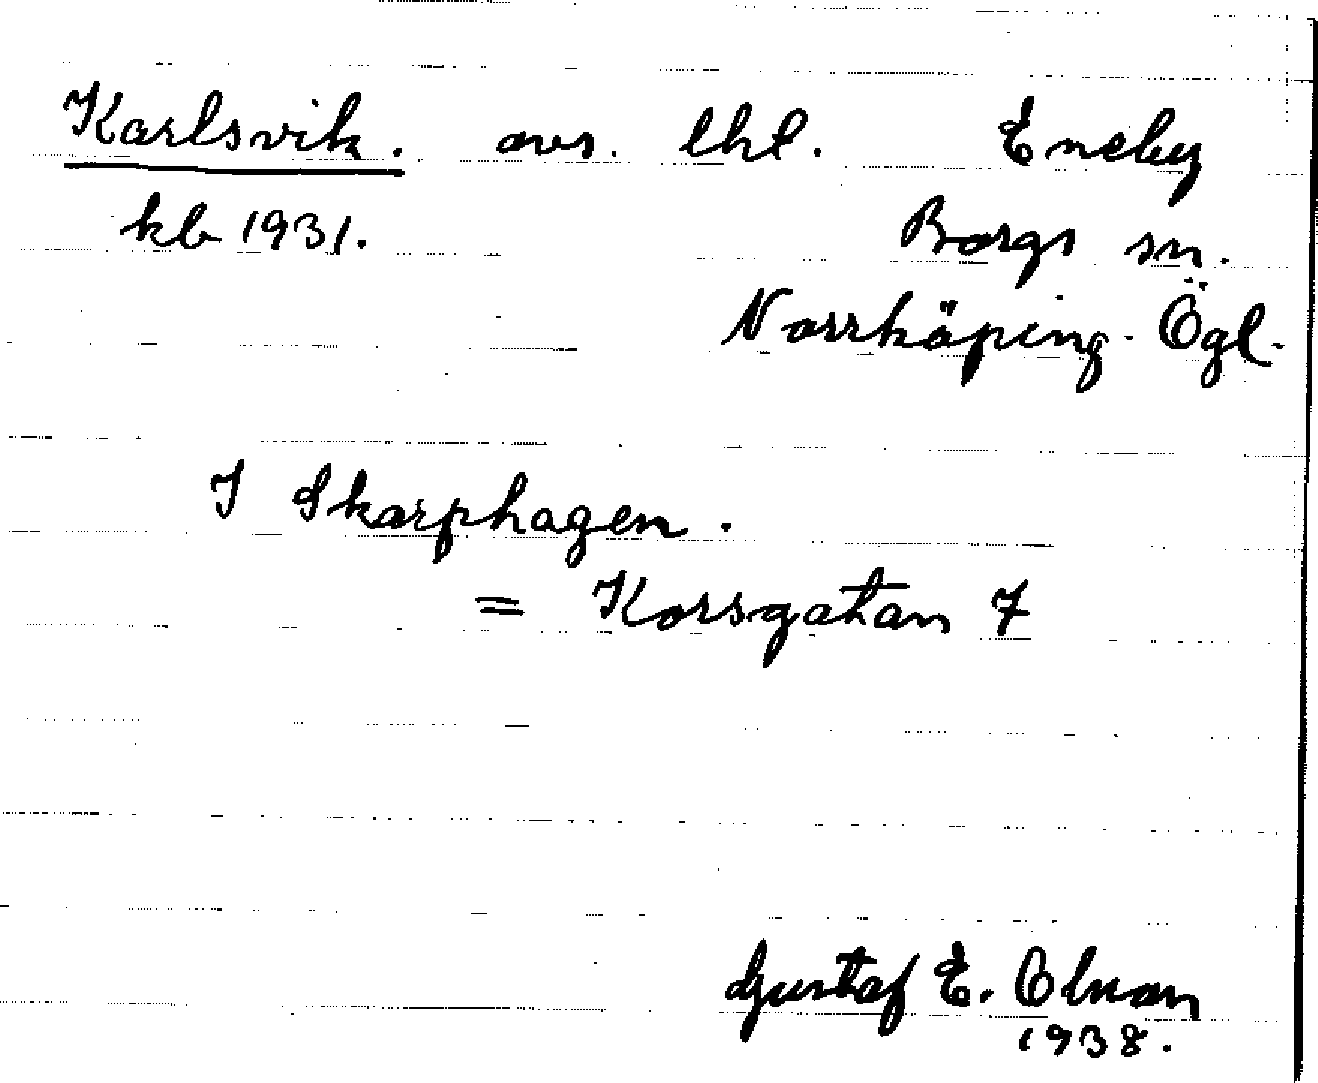 Karlsvik. avs. lht. Eneby
kb 1931. Borgs sn.
Norrköping. Ögl.
I Skarphagen.
= Korsgatan 7
Gustaf E. Olman
1938.